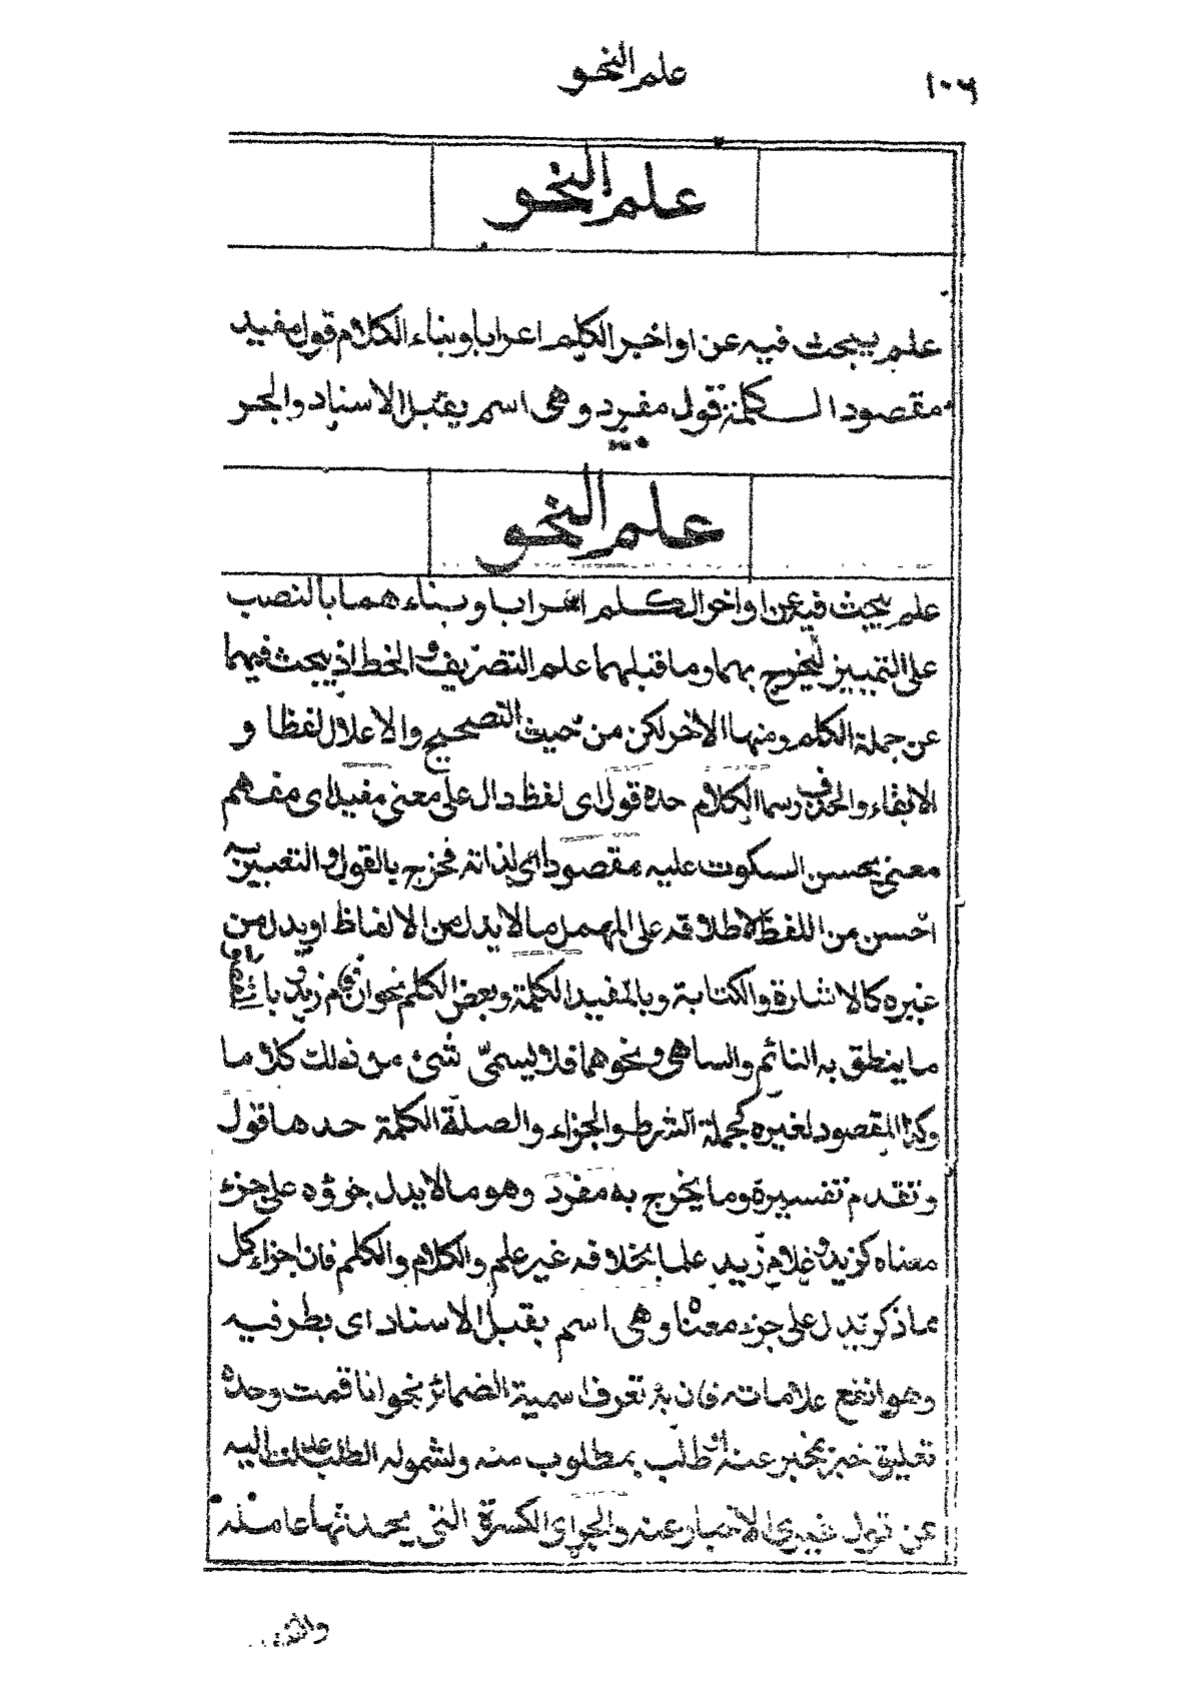 ١٠٦
علم النحو
علم النحو
علم يبحث فيه عن اواخر الكلم اعرابا وبناء الكلام قول مفيد
مقصود الكلمة قول مفرد وهى اسم يقبل الاسناد والجر
علم النحو
علم يبحث فيه عن اواخر الكلم اعرابا وبناء هما بالنصب
على التمييز ليخرج بهما وما قبلهما علم التصريف والخط اذ يبحث فيهما
عن جملة الكلم ومنها الاخر لكن من حيث التصحيح والاعلال لفظا و
الابقاء والحذف رسما الكلام حده قول اى لفظ دال على معنى مفيد اى مفهم
معنى يحسن السكوت عليه مقصود اى لذاته فخرج بالقول والتعبير به
احسن من اللفظ لاطلاقه على المهمل مالا يدل من الالفاظ او يدل من
غيره كالاشارة والكتابة وبالمفيد الكلمة وبعض الكلم نحو ان قام زيد و با
ما ينطق به النائم والساهى ونحوهما فلا يسمى شئ من ذلك كلاما
وكذا المقصود لغيره كجملة الشرط والجزاء والصلة الكلمة حدها قول
وتقدم تفسيره وما يخرج به مفرد وهو مالا يدل جزؤه على جزء
معناه كزيد وغلام زيد علما بخلافه غير علم والكلام والكلم فان اجزاء كل
مما ذكر يدل على جزء معناه وهى اسم يقبل الاسناد اى بطرفيه
وهو انفع علاماته فان به تعرف اسمية الضمائر نحو انا قمت وحده
تعليق خبر بمخبر عنه او طلب بمطلوب منه ولشموله الطلب عدلت اليه
عن قول غيرى الاخبار عنه والجر اى الكسرة التى يحدثها عامله